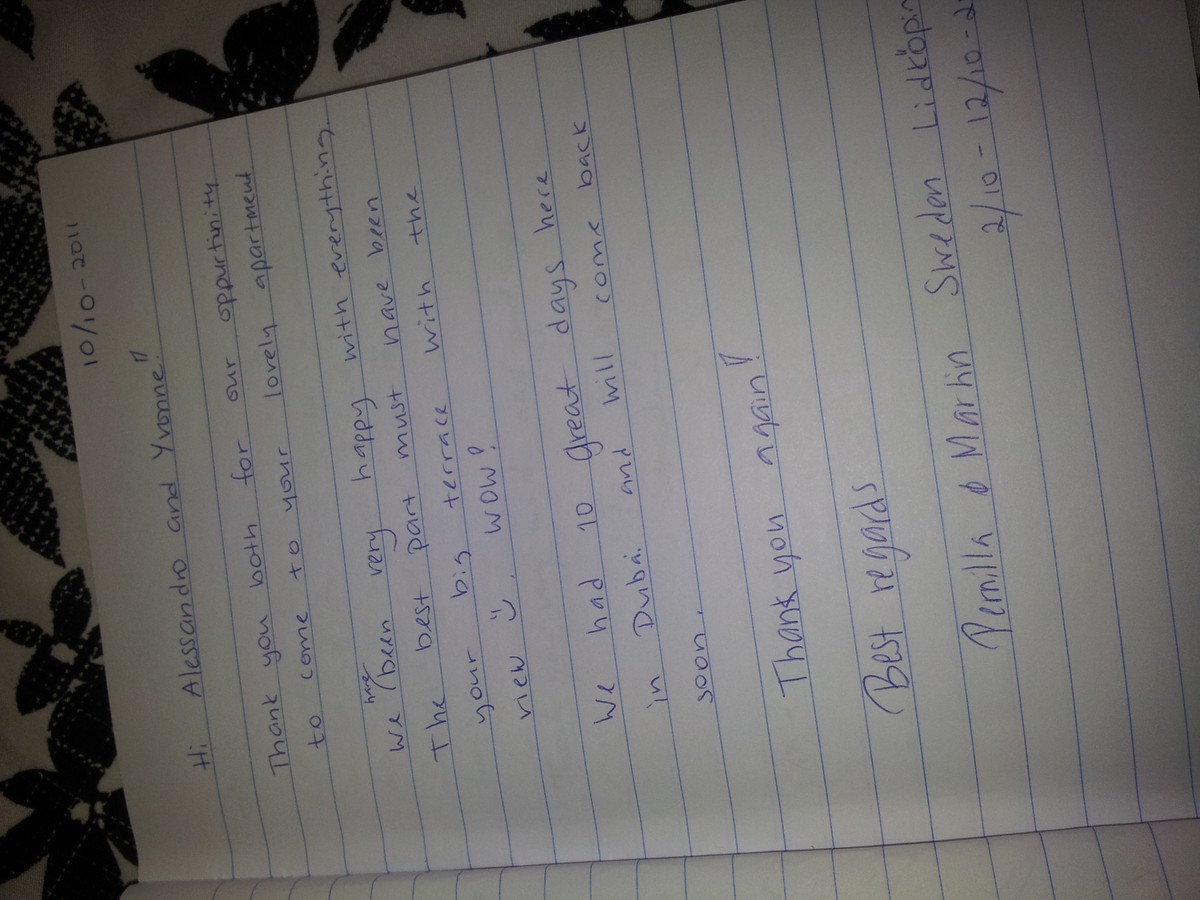 10/10-2011
Hi Alessandro and Yvonne!!
Thank you both for our oppurtinity
to come to your lovely apartment
We have been very happy with everything.
The best part must have been
your big terrace with the
view :) WOW!
We had 10 great days here
in Dubai and will come back
soon.
Thank you again!!
Best regards
Pernilla & Martin Sweden Lidköpin
2/10 - 12/10-2